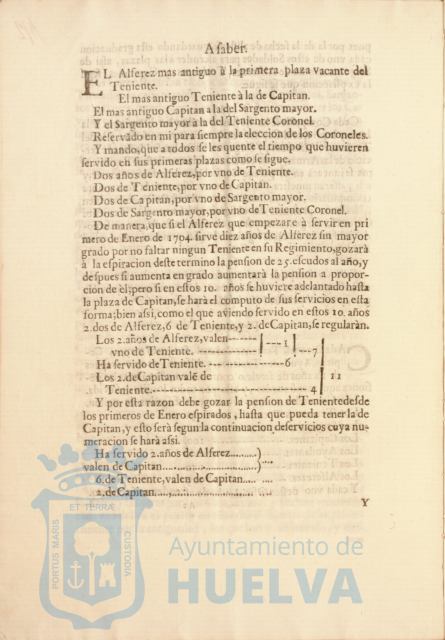 A saber.
EL Alferez mas antiguo à la primera plaza vacante del
Teniente.
El mas antiguo Teniente à la de Capitan.
El mas antiguo Capitan a la del Sargento mayor.
Y el Sargento mayor à la del Teniente Coronel.
Reservado en mi para siempre la eleccion de los Coroneles.
Y mando, que a todos se les quente el tiempo que huvieren
servido en sus primeras plazas como se sigue.
Dos años de Alferez, por vno de Teniente.
Dos de Teniente, por vno de Capitan.
Dos de Capitan, por vno de Sargento mayor.
Dos de Sargento mayor, por vno de Teniente Coronel.
De manera, que si el Alferez que empezarè à servir en pri
mero de Enero de 1704. sirve diez años de Alferez sin mayor
grado por no faltar ningun Teniente en su Regimiento, gozarà
à la espiracion deste termino la pension de 25. escudos al año, y
despues si aumenta en grado aumentarà la pension a propor-
cion de èl; pero si en estos 10. años se huviere adelantado hasta
la plaza de Capitan, se harà el computo de sus servicios en esta
forma; bien assi, como el que aviendo servido en estos 10. años
2. dos de Alferez, 6 de Teniente, y 2. de Capitan, se regularàn.
Los 2. años de Alferez, valen------- | --- 1
vno de Teniente. ------------ | --- 7
Ha servido de Teniente. --------------- 6
Los 2. de Capitan vale de | 11
Teniente.------------------------------- 4
Y por esta razon debe gozar la pension de Teniente desde
los primeros de Enero espirados, hasta que pueda tener la de
Capitan, y esto serà segun la continuacion de servicios cuya nu-
meracion se harà assi.
Ha servido 2. años de Alferez.........)
valen de Capitan........................)....
6. de Teniente, valen de Capitan..... ....
2. de Capitan........................ .... ....
Y
ET TERRÆ
PORTUS MARIS
CUSTODIA
Ayuntamiento de
HUELVA